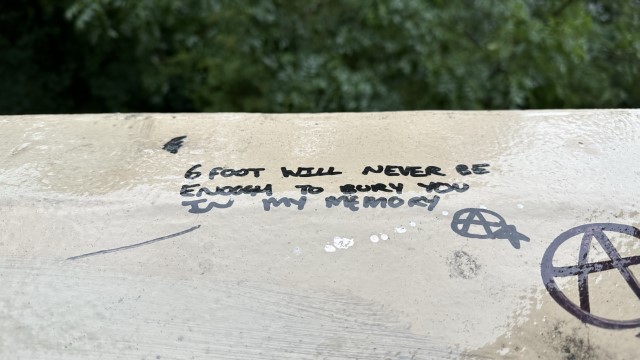 6 FOOT WILL NEVER BE
ENOUGH TO BURY YOU
IN MY MEMORY